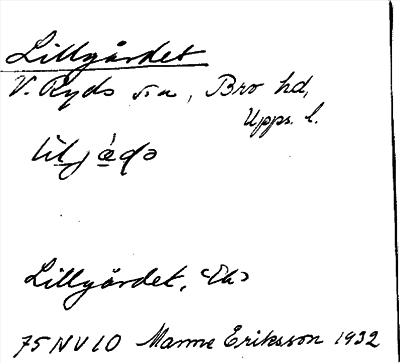 Lillgårdet
V. Ryds sn, Bro hd,
Upps. l.
Lillgårdet, (Ek)
75 NV 10 Manne Eriksson 1932